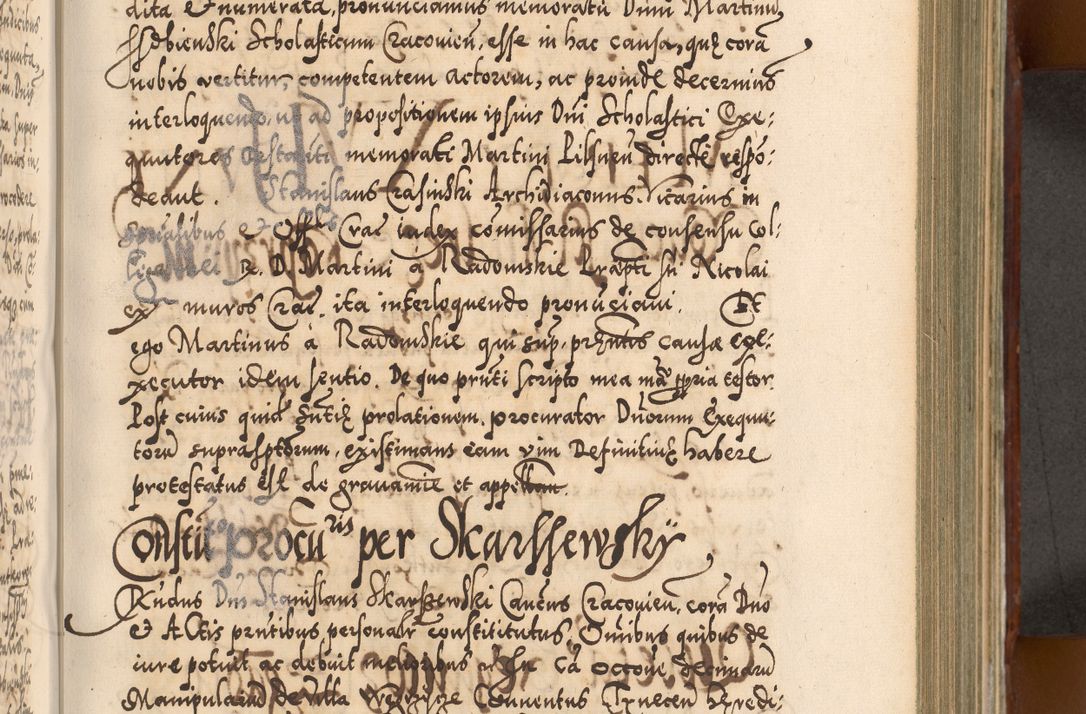 dita et numerata, pronunciamus memoratū Dnum Martinū
Issdbienski Scholasticum Cracovien, esse in hac causa, quę corā
nobis vertitur, competentem actorem, ac proinde decernimus
interloquendo, ut ad propositionem ipsius Dni Scholastici Exe:
quutores memorati Martini Pilsneū directe respō:
deant. Stanislaus Crasinski Archidiaconus, Vicarius in
spūalibus et Offlis Crac iudex cōmissarius de consensu Col:
legae mei R. D. Martini à Radomskie Prapti Sti Nicolai
ex muros Crac, ita interloquendo pronūciavi. Et
ego Martinus à Radomskie qui sup. prżntis causae col:
xecutor idem sentio. De quo prnti scripto mea mā ppria testor
Post cuius quid sūtię prolationem, procurator Dnorum Exequu:
torū suprasptorum, existimans eam vim Definitivę habere
protestatus est de gravamie et appellam.
Constū procuris per Skarssewsky
Rndus Dns Stanislaus Skarszewski Canćus Cracovien, corā Dno
et Actis prntibus personalr constititutus, Omnibus quibus de
iure potuit ac debuit melioribus In Cā occoñe decimarū
Manipulariū de Villa Conventus Tynecen hęredi: